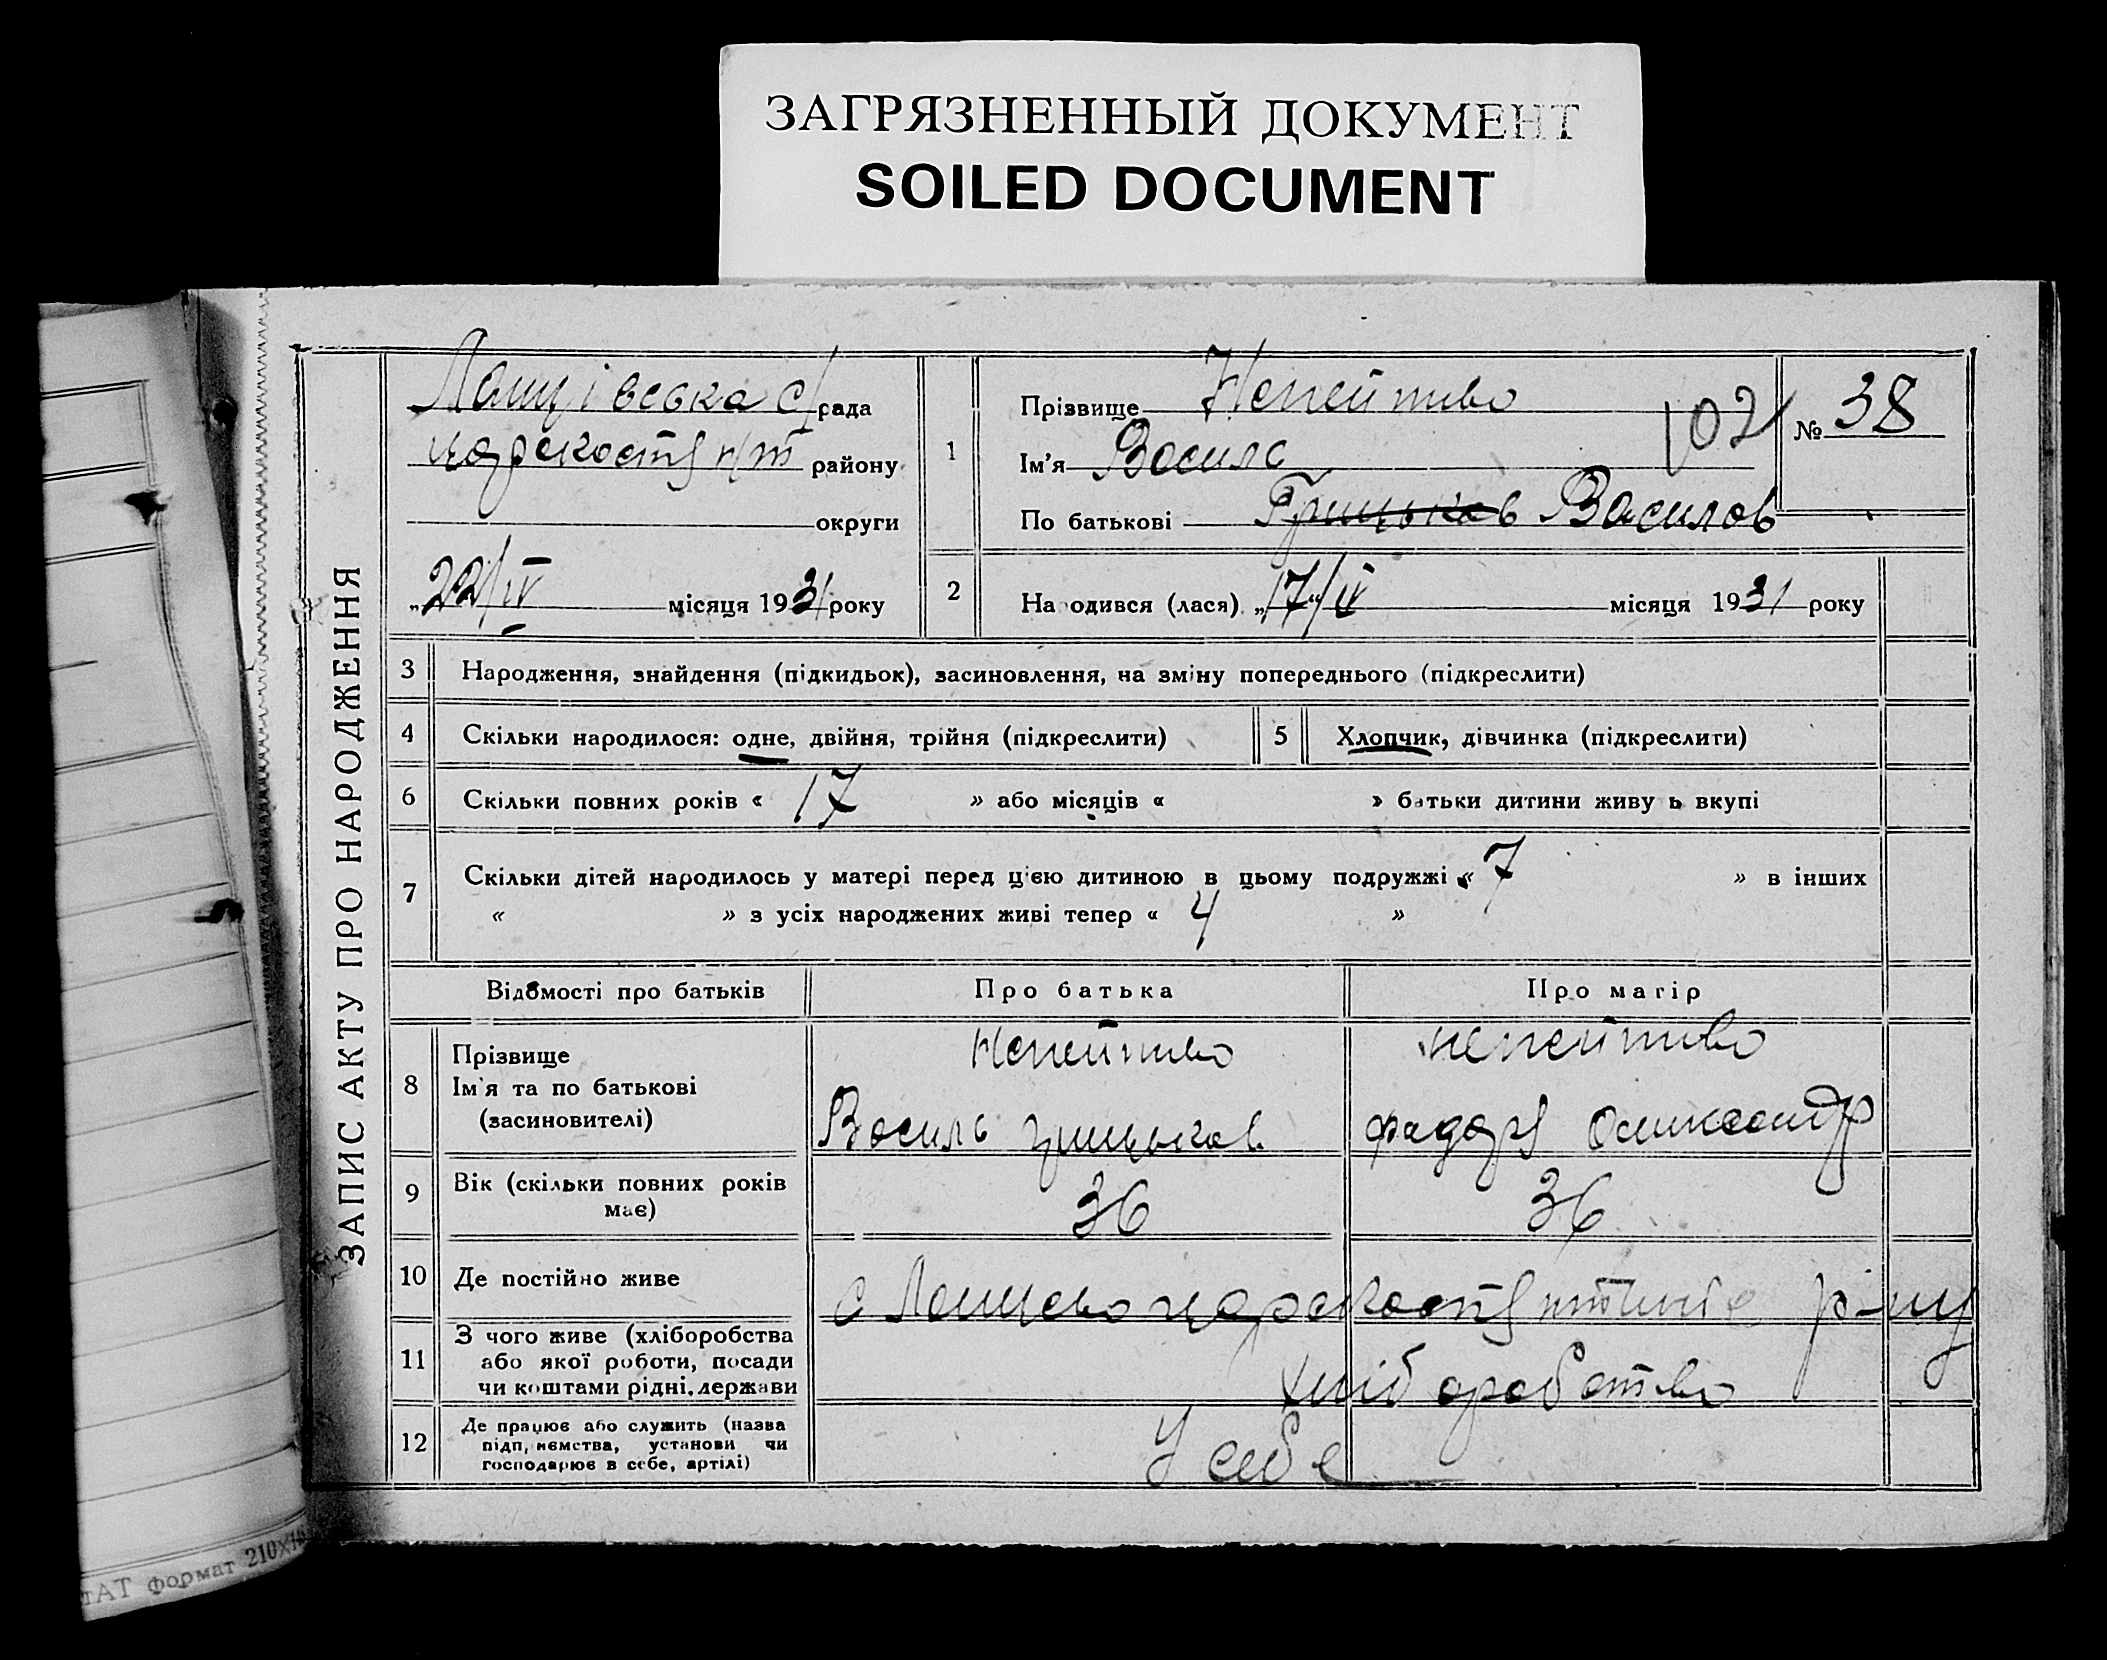 ЗАГРЯЗНЕННЫЙ ДОКУМЕНТ
SOILED DOCUMENT
ЗАПИС АКТУ ПРО НАРОДЖЕННЯ
Лащівська с/рада
району
округи
„22/IV місяця 1931 року
1
Прізвище Непейпиво
Ім'я Василь
По батькові Грицьков Василов
102
№ 38
2 Народився (лася) „17“/IV місяця 1931 року
3 Народження, знайдення (підкидьок), засиновлення, на зміну попереднього (підкреслити)
4 Скільки народилося: одне, двійня, трійня (підкреслити)
5 Хлопчик, дівчинка (підкреслити)
6 Скільки повних років « 17 » або місяців « » батьки дитини живуть вкупі
7 Скільки дітей народилось у матері перед цією дитиною в цьому подружжі « 7 » в інших
« » з усіх народжених живі тепер « 4 »
Відомості про батьків Про батька Про матір
8 Прізвище
Ім'я та по батькові
(засиновителі)
Непейпиво
Василь Грицьков
непейпиво
9 Вік (скільки повних років
має)
36 36
10 Де постійно живе
с р-ну
11 З чого живе (хліборобства
або якої роботи, посади
чи коштами рідні, держави
хліборобство
12 Де працює або служить (назва
підприємства, установи чи
господарює в себе, артілі)
У себе
тАТ формат 210×1